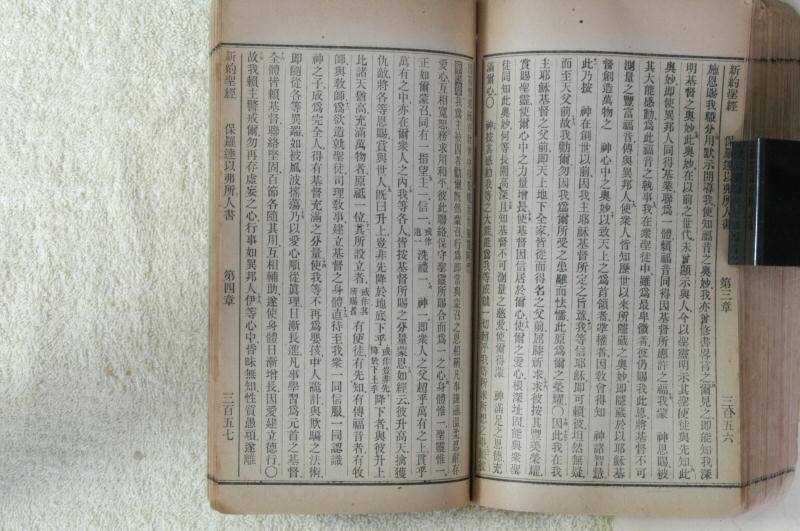 新約聖經　保羅達以弗所人書　第三章　三百五六
施恩賜我職分用默示開導我使知福音之奧妙我亦曾修書畧言之爾見之即能知我深
明基督之奧妙此奧妙在以前之世代未曾顯示與人今以聖靈明示其聖使徒與先知此
奧妙即使異邦人同得基業聯為一體賴福音同得因基督所應許之福我蒙　神恩賜被
其大能感動為此福音之執事我在眾聖徒中雖為最卑微者彼仍賜我此恩將基督不可
測量之豐富福音傳與異邦人使眾人皆知歷世以來所隱藏之奧妙即隱藏於以耶穌基
督創造萬物之　神心中之奧妙以致天上之為首領者掌權者因教會得知　神諸智慧
此乃按　神在創世以前因我主耶穌基督所定之旨意我等信耶穌即可賴彼坦然無疑
而至天父前故我勸爾勿因我為爾所受之患難而怯懦此原為爾之榮耀〇因此我在我
主耶穌基督之父前即天上地下全家皆從而得名之父前屈膝祈求求彼按其豐美榮耀
賞賜聖靈使爾心中之力量增長使基督因信居於爾心使爾之愛心根深址固能與眾聖
徒同知此奧妙何等長闊高深且知基督不可測量之慈愛使爾得蒙　神滿足之恩德充
滿爾心〇　神按其感動我等之大能能為我等成就一切超乎我等所求所想
第四章我為主被囚者勸爾既然蒙召行為即當與蒙召之恩相稱凡事謙遜溫柔忍耐存
愛心互相寬恕務求用和平彼此聯絡保守聖靈所賜合而為一之心身體惟一聖靈惟一
正如爾蒙召同有一指望主一信一或作道一洗禮一　神一即眾人之父超乎萬有之上貫乎
萬有之中亦在爾眾人之內我等各人皆按基督所賜之分量蒙恩如經云彼升高天擒獲
仇敵將各等恩賜賞與世人既曰升上豈非先降於地底下乎或作豈非先降於下土乎降下者與彼升上
比諸天猶高充滿萬物者原祗一位其所設立者或作其所賜者有使徒有先知有傳福音者有牧
師與教師為欲造就聖徒司理教事建立基督之身體直待至我眾一同信服一同認識
神之子成為完全人得有基督充滿之分量使我等不再為嬰孩中人詭計與欺騙之法術
即隨從各等異端如被風波搖蕩乃以愛心順從真理日漸長進凡事學習為元首之基督
全體皆賴基督聯絡堅固百節各隨其用互相輔助遂使身體日漸增長因愛建立德行〇
故我賴主警戒爾勿再存虛妄之心行事如異邦人伊等心中昏昧無知性質愚頑遂離
新約聖經　保羅達以弗所人書　第四章　三百五七